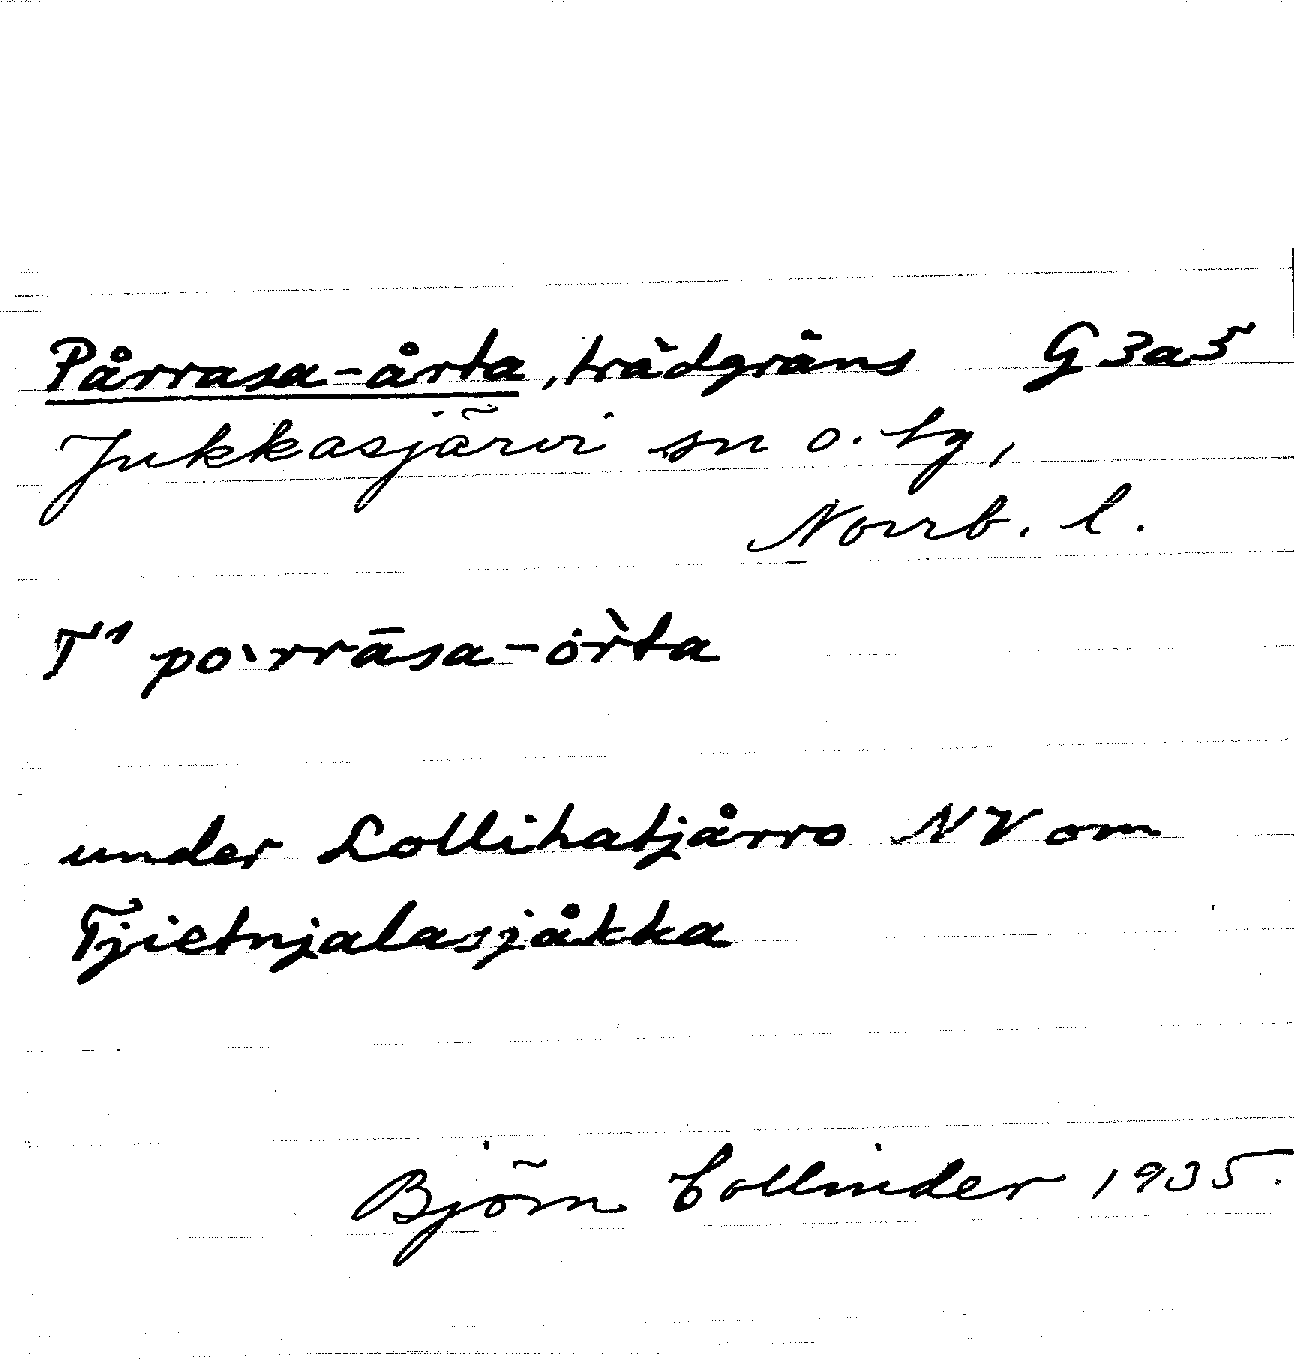 Pårrasa-årta, trädgräns G3a5
Jukkasjärvi sn o. tg,
Norrb. l.
T¹ po·rrāsa-òr̀ta
under Lollihatjårro NV om
Tjietnjalasjåkka
Björn Collinder 1935.